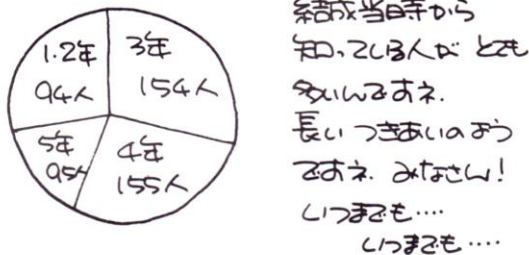 1.2年
94人
3年
154人
5年
95人
4年
155人
結成当時から
知っている人が とても
多いんですネ.
長い つきあいのよう
ですネ. みなさん!
いつまでも....
いつまでも....